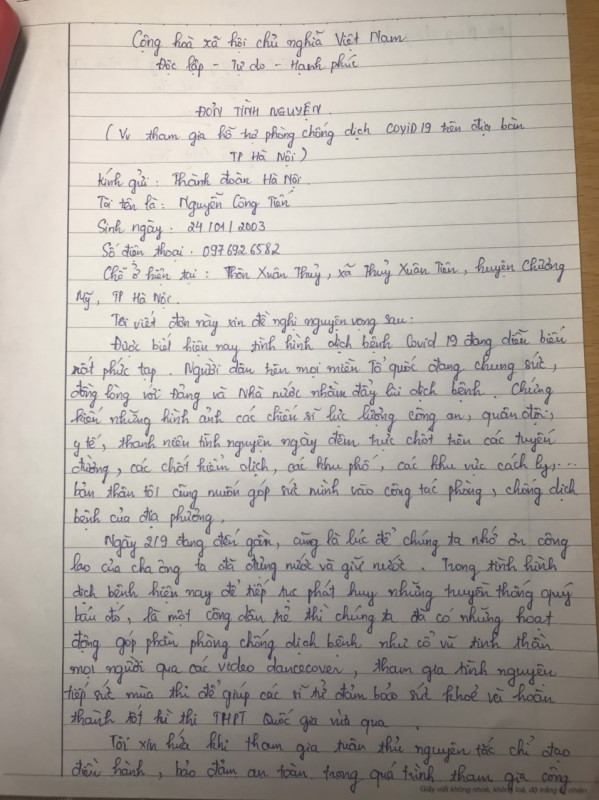 Cộng hoà xã hội chủ nghĩa Việt Nam
Độc lập - Tự do - Hạnh phúc
ĐƠN TÌNH NGUYỆN
( Vv tham gia hỗ trợ phòng chống dịch COVID 19 trên địa bàn
TP Hà Nội )
Kính gửi : Thành đoàn Hà Nội.
Tôi tên là : Nguyễn Công Tiến
Sinh ngày : 24/01/2003
Số điện thoại . 097692 6582
Chỗ ở hiện tại : Thôn Xuân Thuỷ, xã Thuỷ Xuân Tiên, huyện Chương
Mỹ, TP Hà Nội.
Tôi viết đơn này xin đề nghị nguyện vọng sau:
Được biết hiện nay tình hình dịch bệnh Covid 19 đang diễn biến
rất phức tạp . Người dân trên mọi miền Tổ quốc đang chung sức,
đồng lòng với Đảng và Nhà nước nhằm đẩy lùi dịch bệnh . Chứng
kiến những hình ảnh các chiến sĩ lực lượng công an, quân đội,
y tế, thanh niên tình nguyện ngày đêm trực chốt trên các tuyến
đường, các chốt kiểm dịch, các khu phố, các khu vực cách ly,...
bản thân tôi cũng muốn góp sức mình vào công tác phòng, chống dịch
bệnh của địa phương.
Ngày 2/9 đang đến gần, cũng là lúc để chúng ta nhớ ơn công
lao của cha ông ta đã dựng nước và giữ nước . Trong tình hình
dịch bệnh hiện nay để tiếp tục phát huy những truyền thống quý
báu đó, là một công dân trẻ thì chúng ta đã có những hoạt
động góp phần phòng chống dịch bệnh như cổ vũ tinh thần
mọi người qua các video dancecover, tham gia tình nguyện
tiếp sức mùa thi để giúp các sĩ tử đảm bảo sức khoẻ và hoàn
thành tốt kì thi THPT Quốc gia vừa qua.
Tôi xin hứa khi tham gia tuân thủ nguyên tắc chỉ đạo
điều hành, bảo đảm an toàn trong quá trình tham gia công
Giấy viết không nhoè, không loá, độ trắng tự nhiên